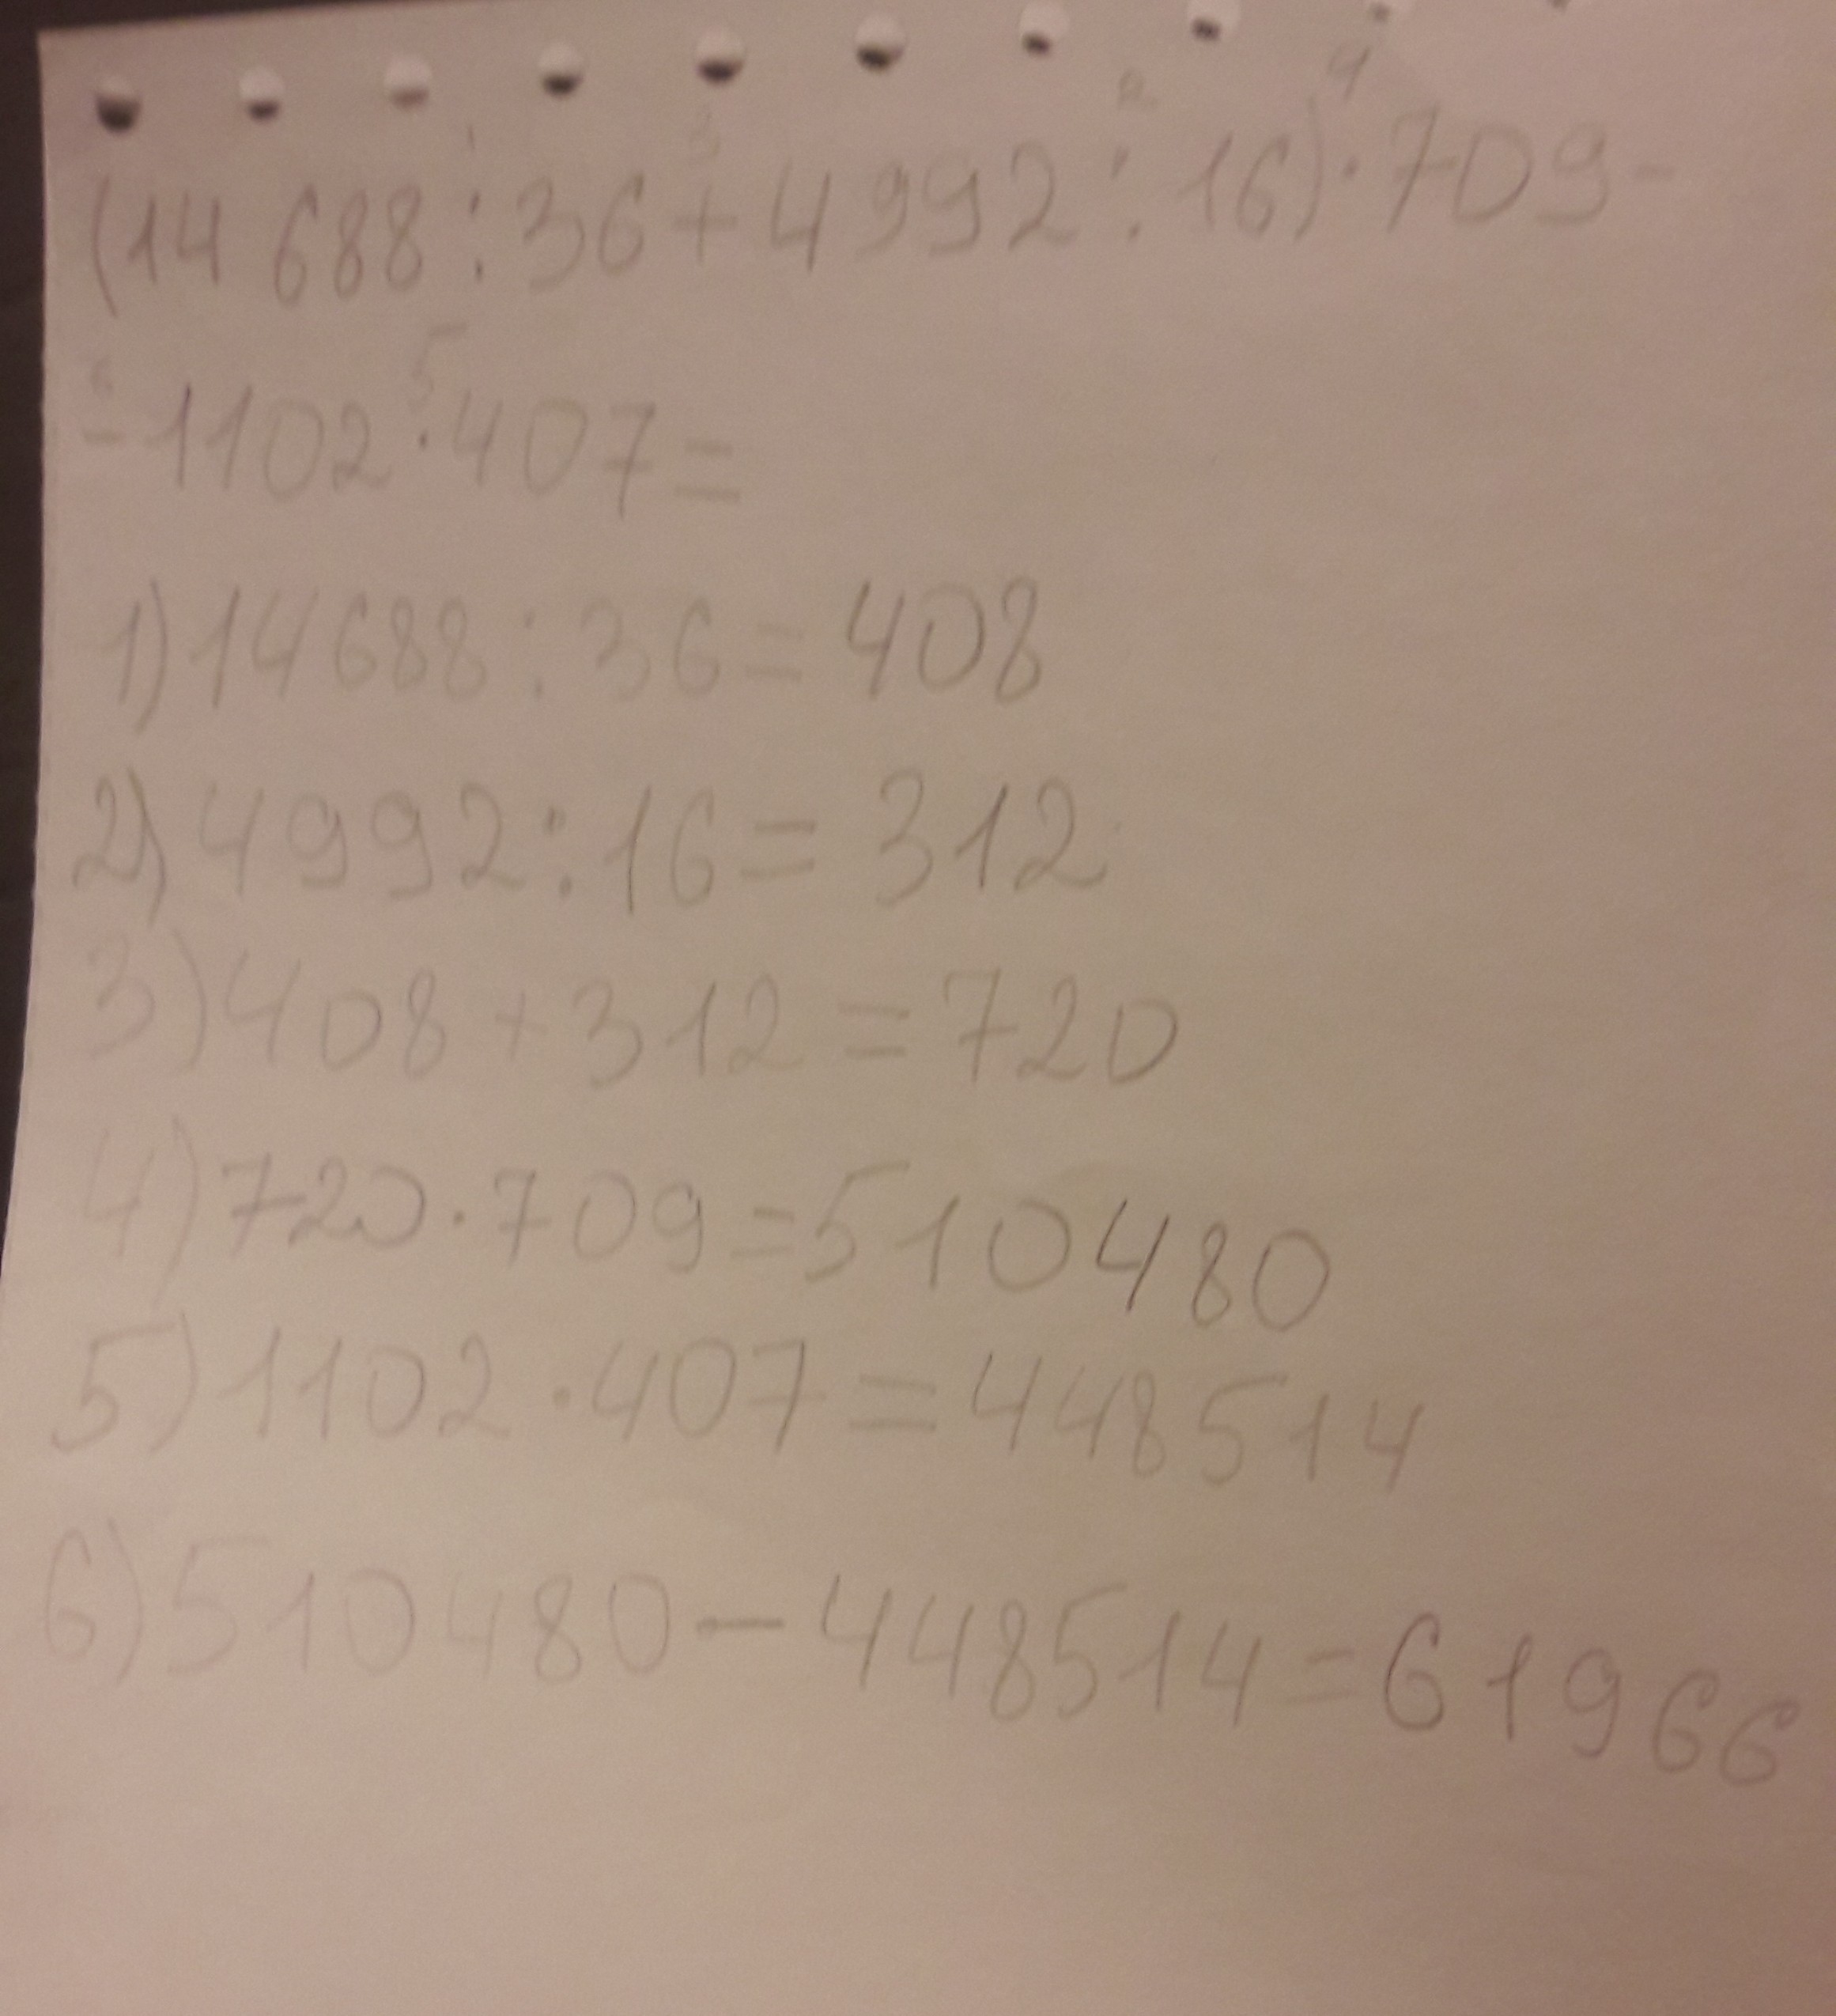 1 3 2 4
(14 688 : 36 + 4992 : 16) · 709 -
6 5
- 1102 · 407 =
1) 14688 : 36 = 408
2) 4992 : 16 = 312
3) 408 + 312 = 720
4) 720 · 709 = 510480
5) 1102 · 407 = 448514
6) 510480 - 448514 = 61966